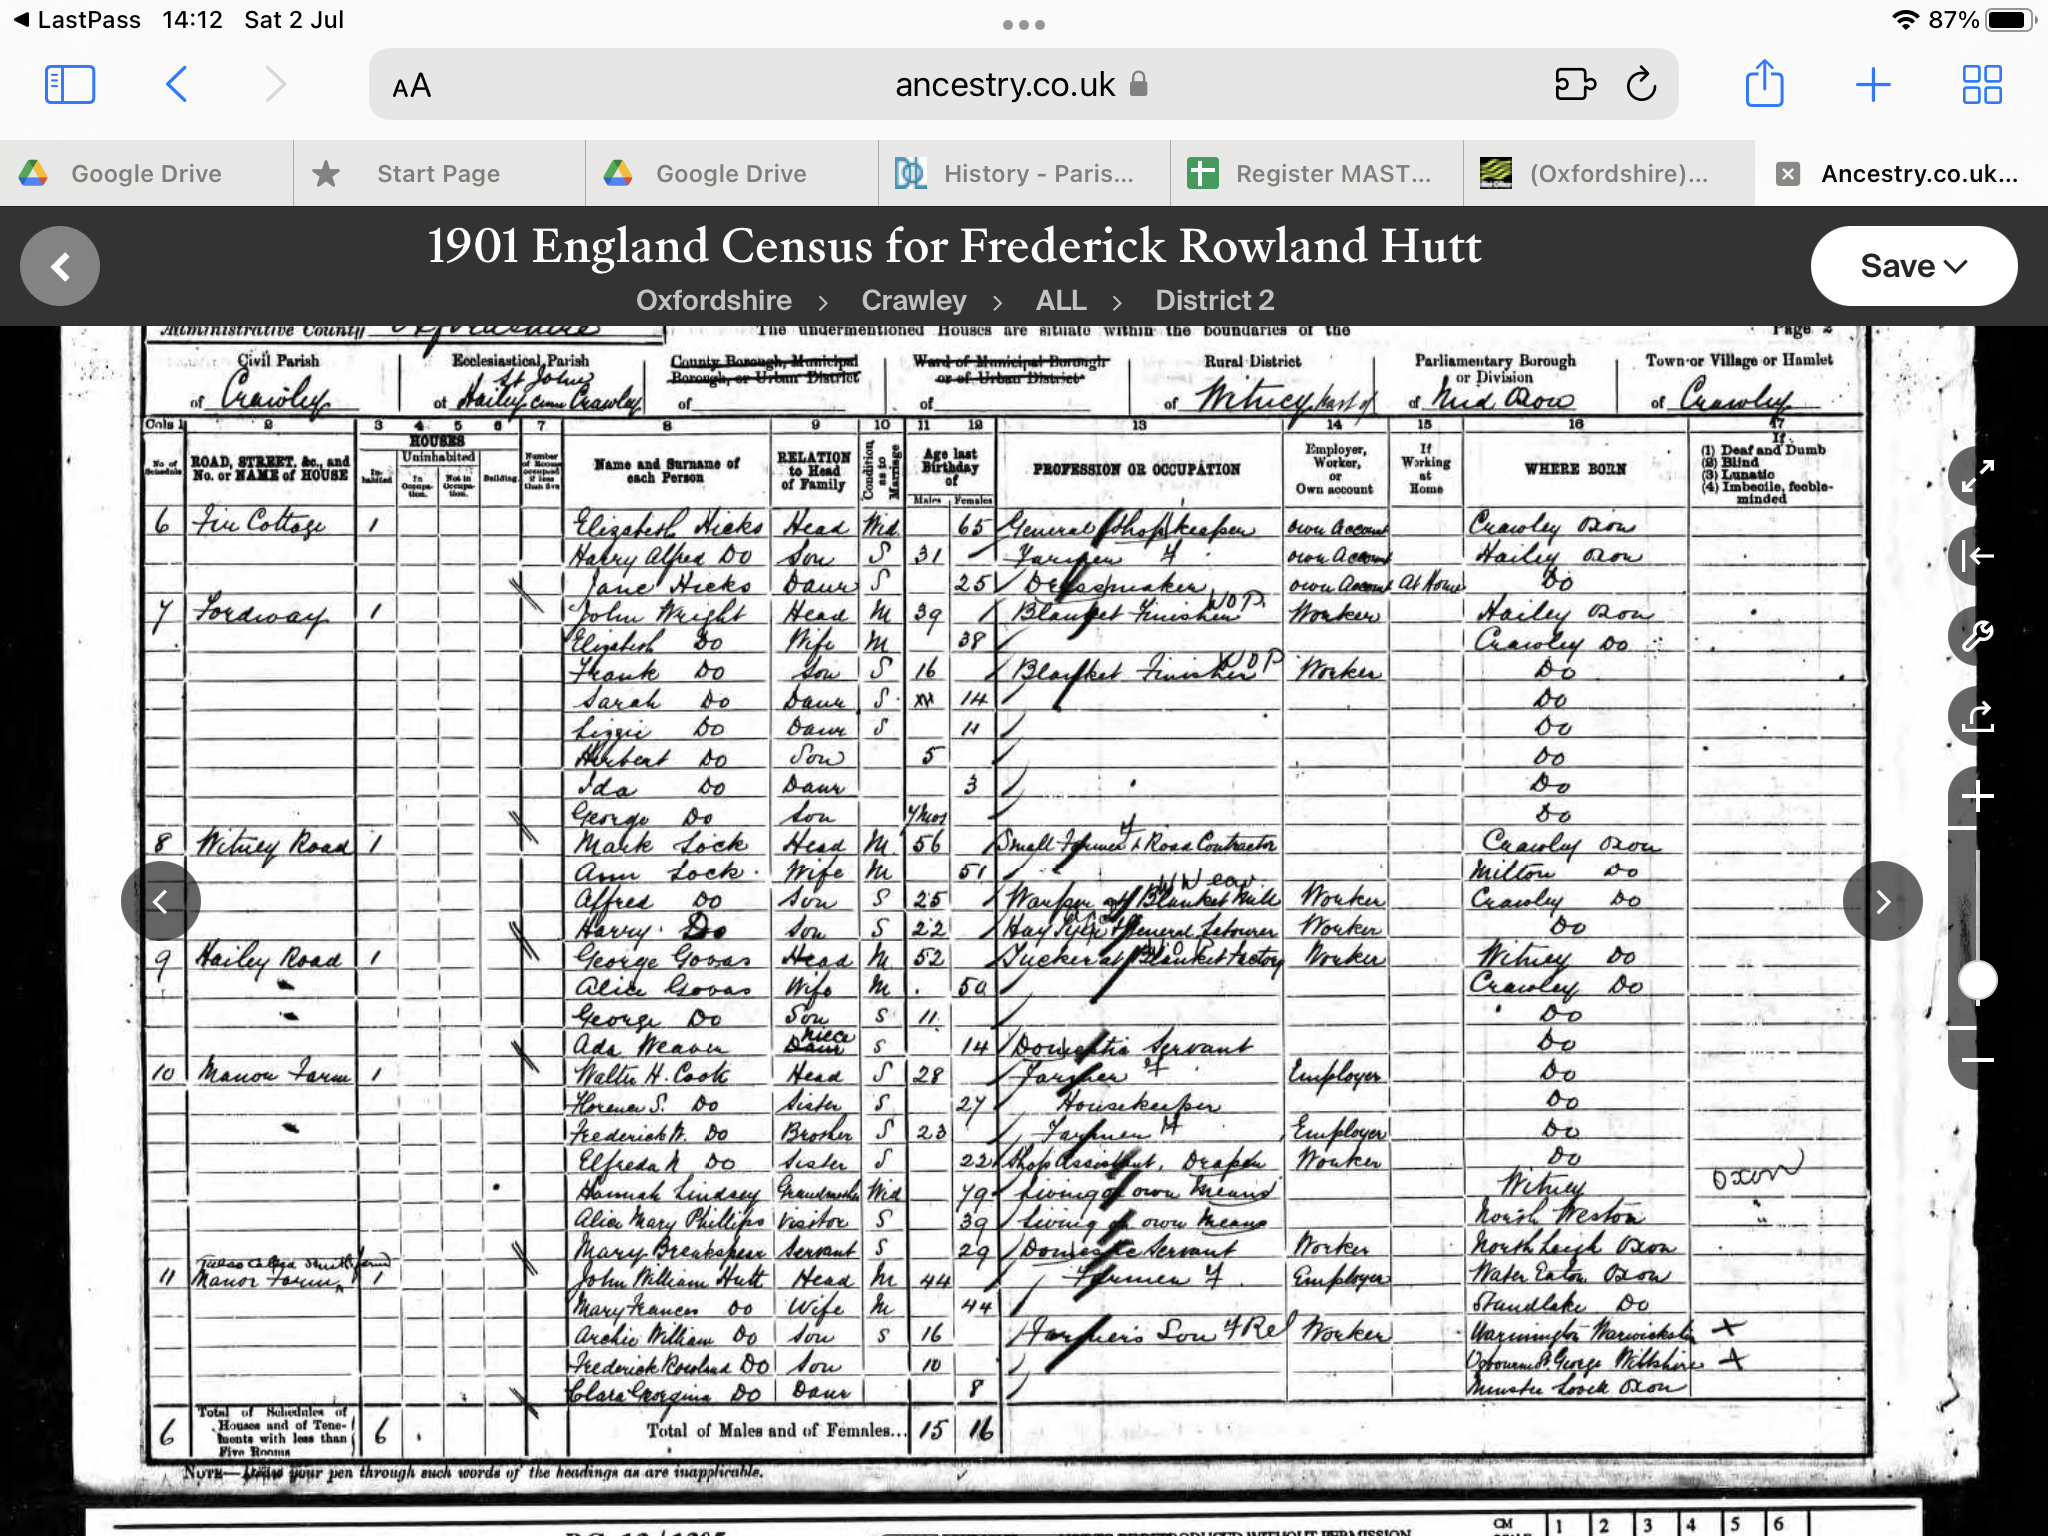 LastPass 14:12 Sat 2 Jul 87%
AA ancestry.co.uk
Google Drive Start Page Google Drive History - Paris... Register MAST... (Oxfordshire)... Ancestry.co.uk...
1901 England Census for Frederick Rowland Hutt
Save
Oxfordshire > Crawley > ALL > District 2
Administrative County Oxfordshire The undermentioned Houses are situate within the boundaries of the Page 2
Civil Parish Ecclesiastical Parish County Borough, Municipal Borough, or Urban District Ward of Municipal Borough or of Urban District Rural District Parliamentary Borough or Division Town or Village or Hamlet
of Crawley of St John's Hailey cum Crawley of of of Witney part of of Mid Oxon of Crawley
Cols 1 2 3 4 5 6 7 8 9 10 11 12 13 14 15 16 17
No. of Schedule ROAD, STREET, &c., and No. or NAME of HOUSE HOUSES Inhabited Uninhabited In Occupation. Not in Occupation. Building. Number of Rooms occupied if less than five Name and Surname of each Person RELATION to Head of Family Condition as to Marriage Age last Birthday of Males Females PROFESSION OR OCCUPATION Employer, Worker, or Own account If Working at Home WHERE BORN If (1) Deaf and Dumb (2) Blind (3) Lunatic (4) Imbecile, feeble-minded
6 Fir Cottage 1 Elizabeth Hicks Head Wid. 65 General Shopkeeper own Account Crawley Oxon
Harry Alfred Do Son S 31 Farmer own Account Hailey Oxon
Jane Hicks Daur S 25 Dressmaker own Account At Home Do
7 Fordway 1 John Wright Head M 39 Blanket Finisher Worker Hailey Oxon
Elizabeth Do Wife M 38 Crawley Do
Frank Do Son S 16 Blanket Finisher Worker Do
Sarah Do Daur S 14 Do
Lizzie Do Daur S 11 Do
Herbert Do Son 5 Do
Ida Do Daur 3 Do
George Do Son 7 mos Do
8 Witney Road 1 Mark Lock Head M 56 Small Farmer & Road Contractor Crawley Oxon
Ann Lock Wife M 51 Milton Do
Alfred Do Son S 25 Warper at Blanket Mill Worker Crawley Do
Harry Do Son S 22 Hay General Labourer Worker Do
9 Hailey Road 1 George Govas Head M 52 Tucker at Blanket Factory Worker Witney Do
Alice Govas Wife M 50 Crawley Do
George Do Son S 11 Do
Ada Weaver Niece Daur S 14 Domestic Servant Do
10 Manor Farm 1 Walter H. Cook Head S 28 Farmer Employer Do
Florence S. Do Sister S 27 Housekeeper Do
Frederick W. Do Brother S 23 Farmer Employer Do
Elfreda N Do Sister S 22 Shop Assistant, Draper Worker Do
Hannah Lindsey Grandmother Wid 79 Living on own Means Witney Oxon
Alice Mary Phillips Visitor S 39 Living on own Means North Weston "
Mary Breakspear Servant S 29 Domestic Servant Worker North Leigh Oxon
11 Manor Farm 1 John William Hutt Head M 44 Farmer Employer Water Eaton Oxon
Mary Frances Do Wife M 44 Standlake Do
Archie William Do Son S 16 Farmer's Son Worker Warmington Warwicksh
Frederick Rowland Do Son 10 Ogbourne St. George Wiltshire
Clara Georgina Do Daur 8 Minster Lovell Oxon
6 Total of Schedules of Houses and of Tenements with less than Five Rooms 6 Total of Males and of Females... 15 16
NOTE—Draw your pen through such words of the headings as are inapplicable.
CM 1 2 3 4 5 6